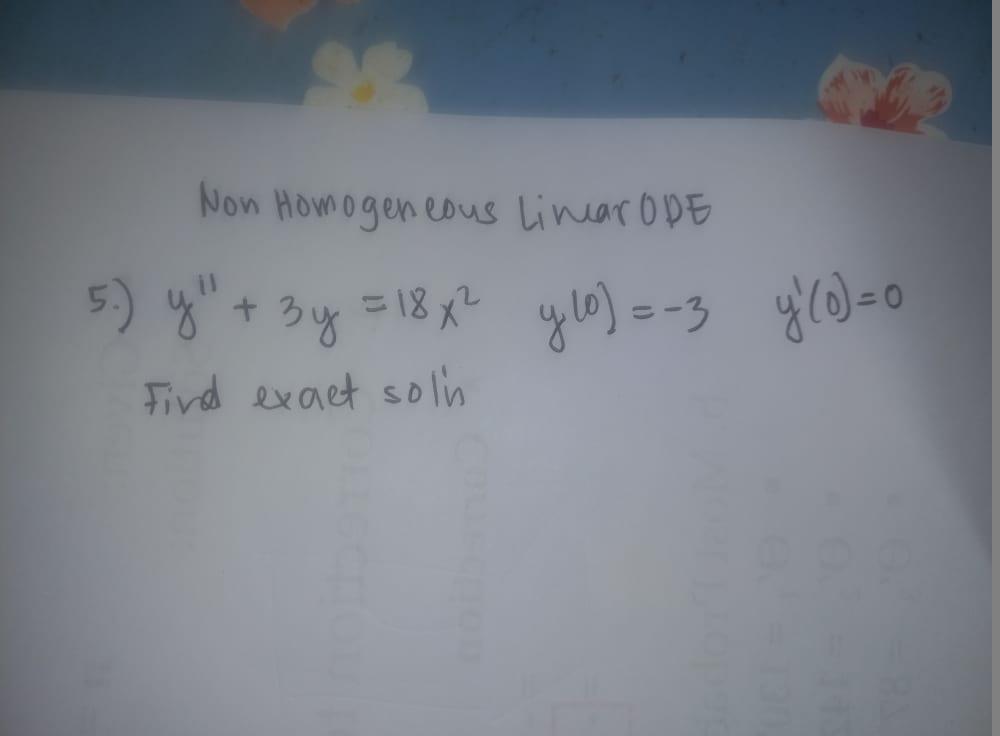 Non Homogeneous Linear ODE
5.) y'' + 3y = 18x² y(0) = -3 y'(0) = 0
Find exact sol'n